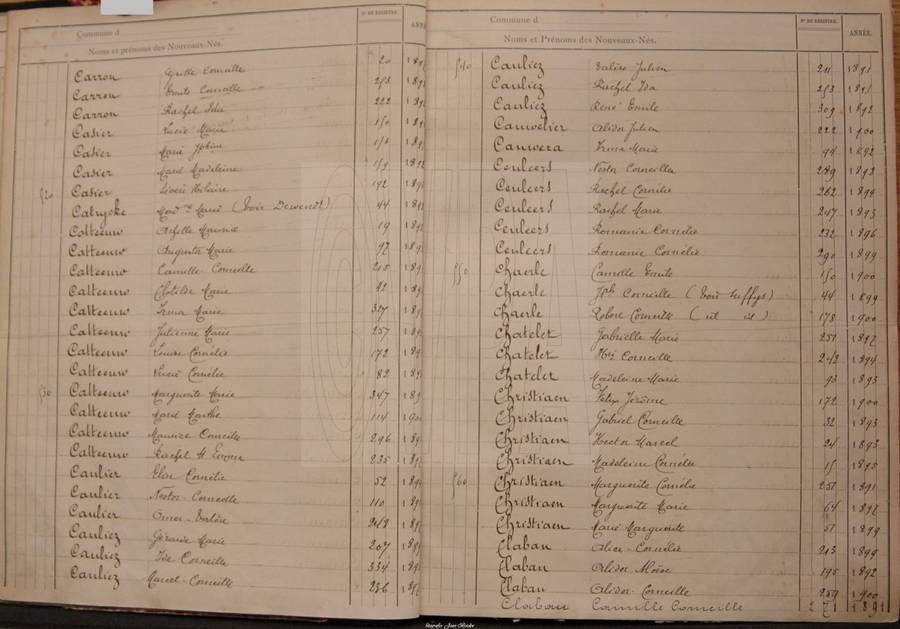 Commune d
N° DU REGISTRE.
Noms et prénoms des Nouveaux-Nés.
Carron Corneille 20 189
Carron Emile Corneille 253 189
Carron Rachel Ida 222 189
Casier Lucie Marie 150 189
Casier Marie 189
Casier Marie Madeleine 159 1892
520 Casier Hilaire 192 189
Catryske Marie (Voir Dewendt) 44 189
Catteeuw Maurice 19 189
Catteeuw Augusta Marie 97 189
Catteeuw Camille Corneille 205 189
Catteeuw Clotilde Marie 92 189
Catteeuw Irma Marie 327 189
Catteeuw Julienne Marie 257 189
Catteeuw Louise Cornélie 172 189
Catteeuw Lucie Cornélie 82 189
530 Catteeuw Marguerite Marie 347 189
Catteeuw Marie Marthe 114 190
Catteeuw Maurice Corneille 296 189
Catteeuw Rachel 235 189
Caulier Cornélie 52 189
Caulier Nestor Corneille 110 189
Caulier Omer Valère 248 189
Cauliez Gérard Marie 207 189
Cauliez Corneille 334 189
Cauliez Marcel Corneille 236 189
Commune d
N° DU REGISTRE.
ANNÉE.
Noms et Prénoms des Nouveaux-Nés.
540 Cauliez Valère Julien 211 1891
Cauliez Rachel Ida 253 1891
Cauliez René Emile 309 1892
Cauwelier Alidor Julien 222 1900
Cauwera Irma Marie 94 1892
Ceuleers Nestor Corneille 289 1893
Ceuleers Rachel Cornélie 262 1894
Ceuleers Rachel Marie 247 1893
Ceuleers Romanie Cornélie 232 1896
Ceuleers Romanie Cornélie 290 1899
550 Chaerle Camille Emile 150 1900
Chaerle Jph Corneille (Voir ) 44 1899
Chaerle Robert Corneille ( id id ) 178 1900
Chatelet Gabrielle Marie 251 1897
Chatelet Hri Corneille 242 1894
Chatelet Madeleine Marie 93 1893
Christiaen Félix Jérôme 172 1900
Christiaen Gabriel Corneille 32 1893
Christiaen Hector Marcel 24 1893
Christiaen Madeleine Cornélie 15 1895
560 Christiaen Marguerite Cornélie 251 1891
Christiaen Marguerite Marie 64 1897
Christiaen Marie Marguerite 51 1899
Claban Alice Cornélie 213 1899
Claban Alidor Moïse 195 1892
Claban Alidor Corneille 259 1900
Clabau Camille Corneille 271 1891